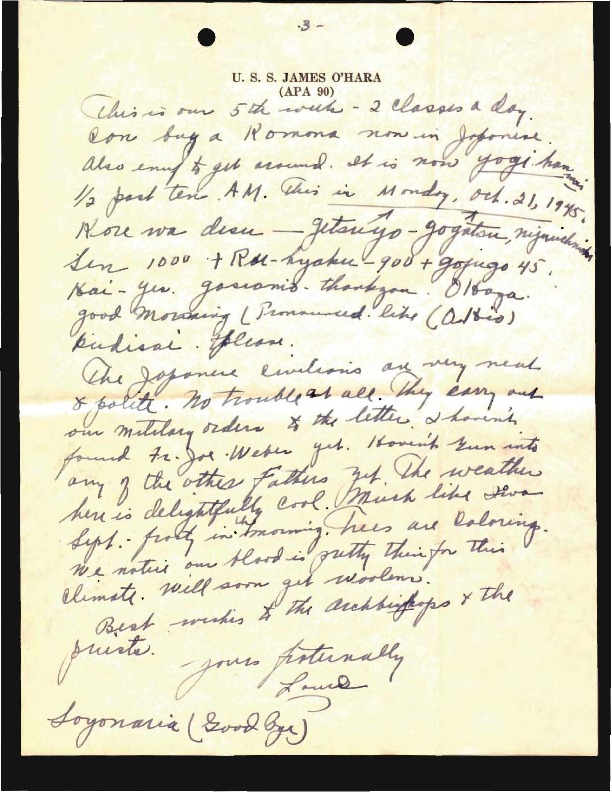 -3-
U. S. S. JAMES O'HARA
(APA 90)
This is our 5th week - 2 classes a day.
Can buy a Komona now in Japanese.
Also enuf to get around. It is now yogi han
1/2 past ten A.M. This is Monday, Oct. 21, 1945.
Kore wa desu — getsuyo - gogatsu,
Sen 1000 + Ku-hyaku - 900 + gojugo 45.
Hai - yes. gosiamis - thankyou. Ohaza.
good Morning (Pronounced like (Ohio)
Kudisai. Please.
The Japanese civilians are very neat
& polite. No trouble at all. They carry out
our military orders to the letter. I haven't
found Fr. Joe Weber yet. Haven't run into
any of the other Fathers yet. The weather
here is delightfully cool. Much like Iowa
Sept. - frosty in the morning. Trees are Coloring.
We notice our blood is pretty thin for this
climate. Will soon get woolens.
Best wishes to the Archbishops & the
priests.
- yours fraternally
Louis
Soyonaria (Good bye)